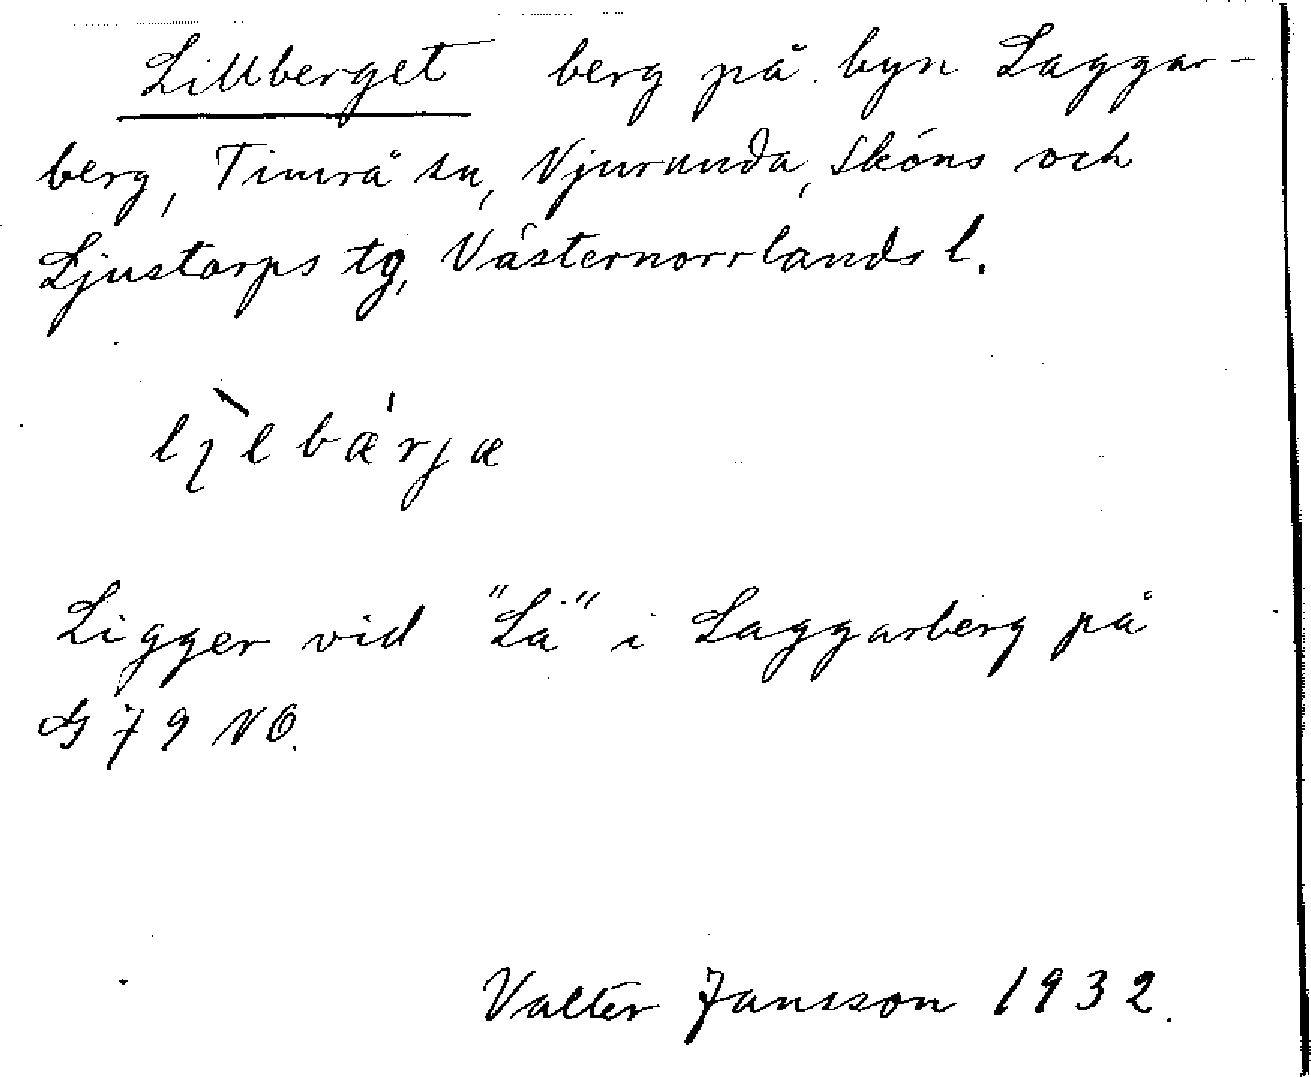 Lillberget berg på byn Laggar-
berg, Timrå sn, Njurunda, Sköns och
Ljustorps tg, Västernorrlands l.
lìlbǽrjæ
Ligger vid "Lä" i Laggarberg på
G 79 NO.
Valter Jansson 1932.